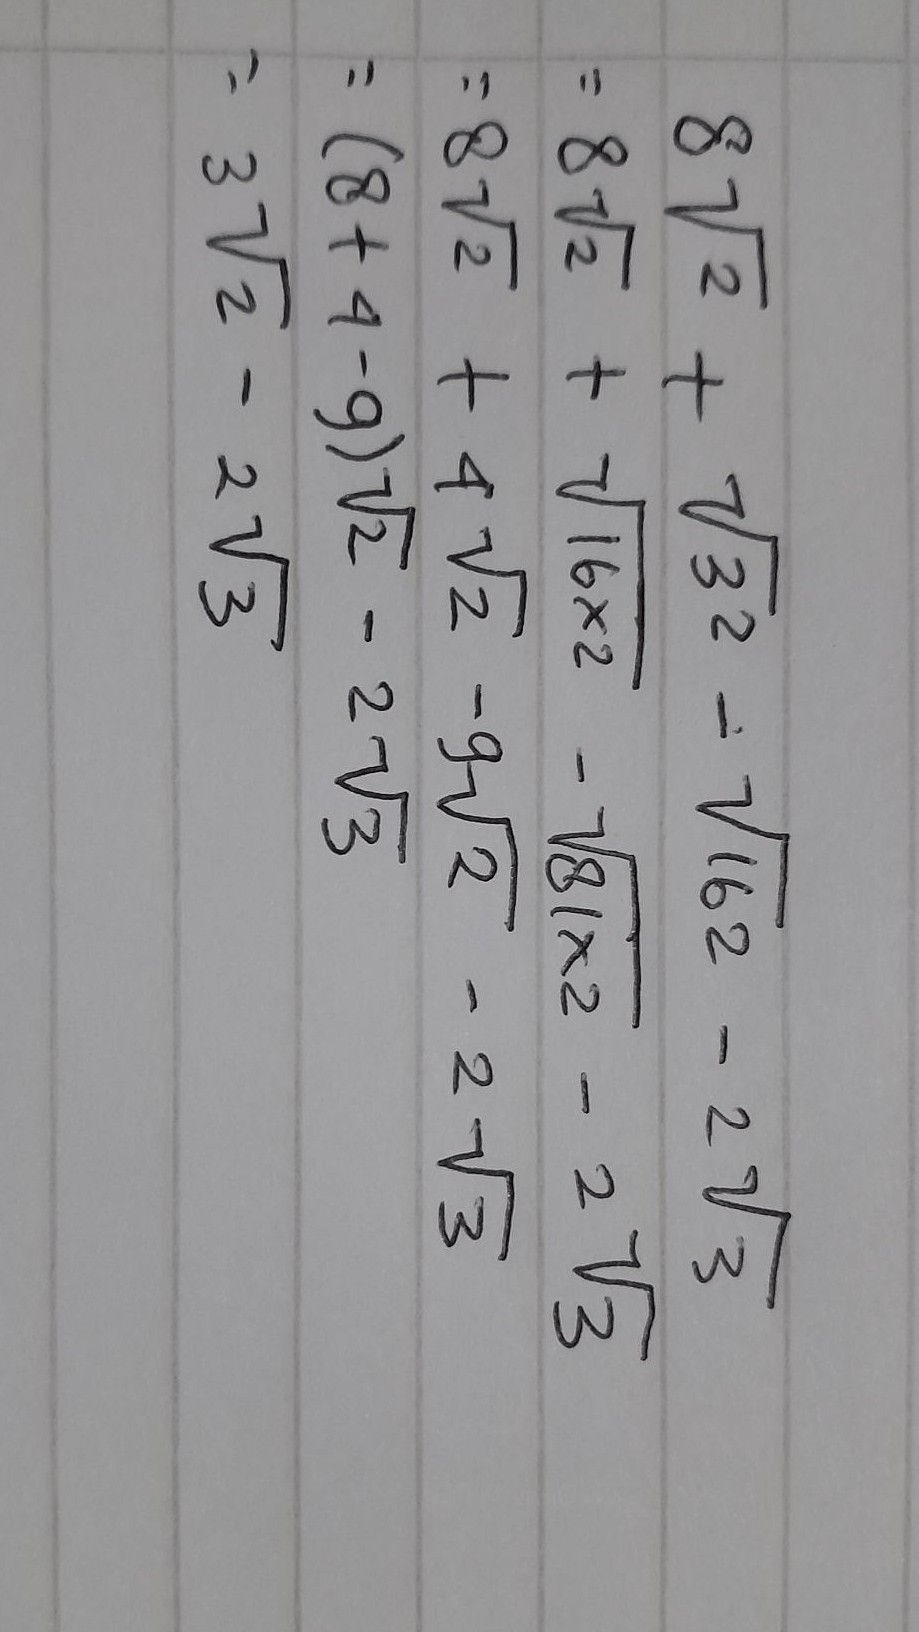 8√2 + √32 - √162 - 2√3
= 8√2 + √16×2 - √81×2 - 2√3
= 8√2 + 4√2 - 9√2 - 2√3
= (8 + 4 - 9)√2 - 2√3
= 3√2 - 2√3